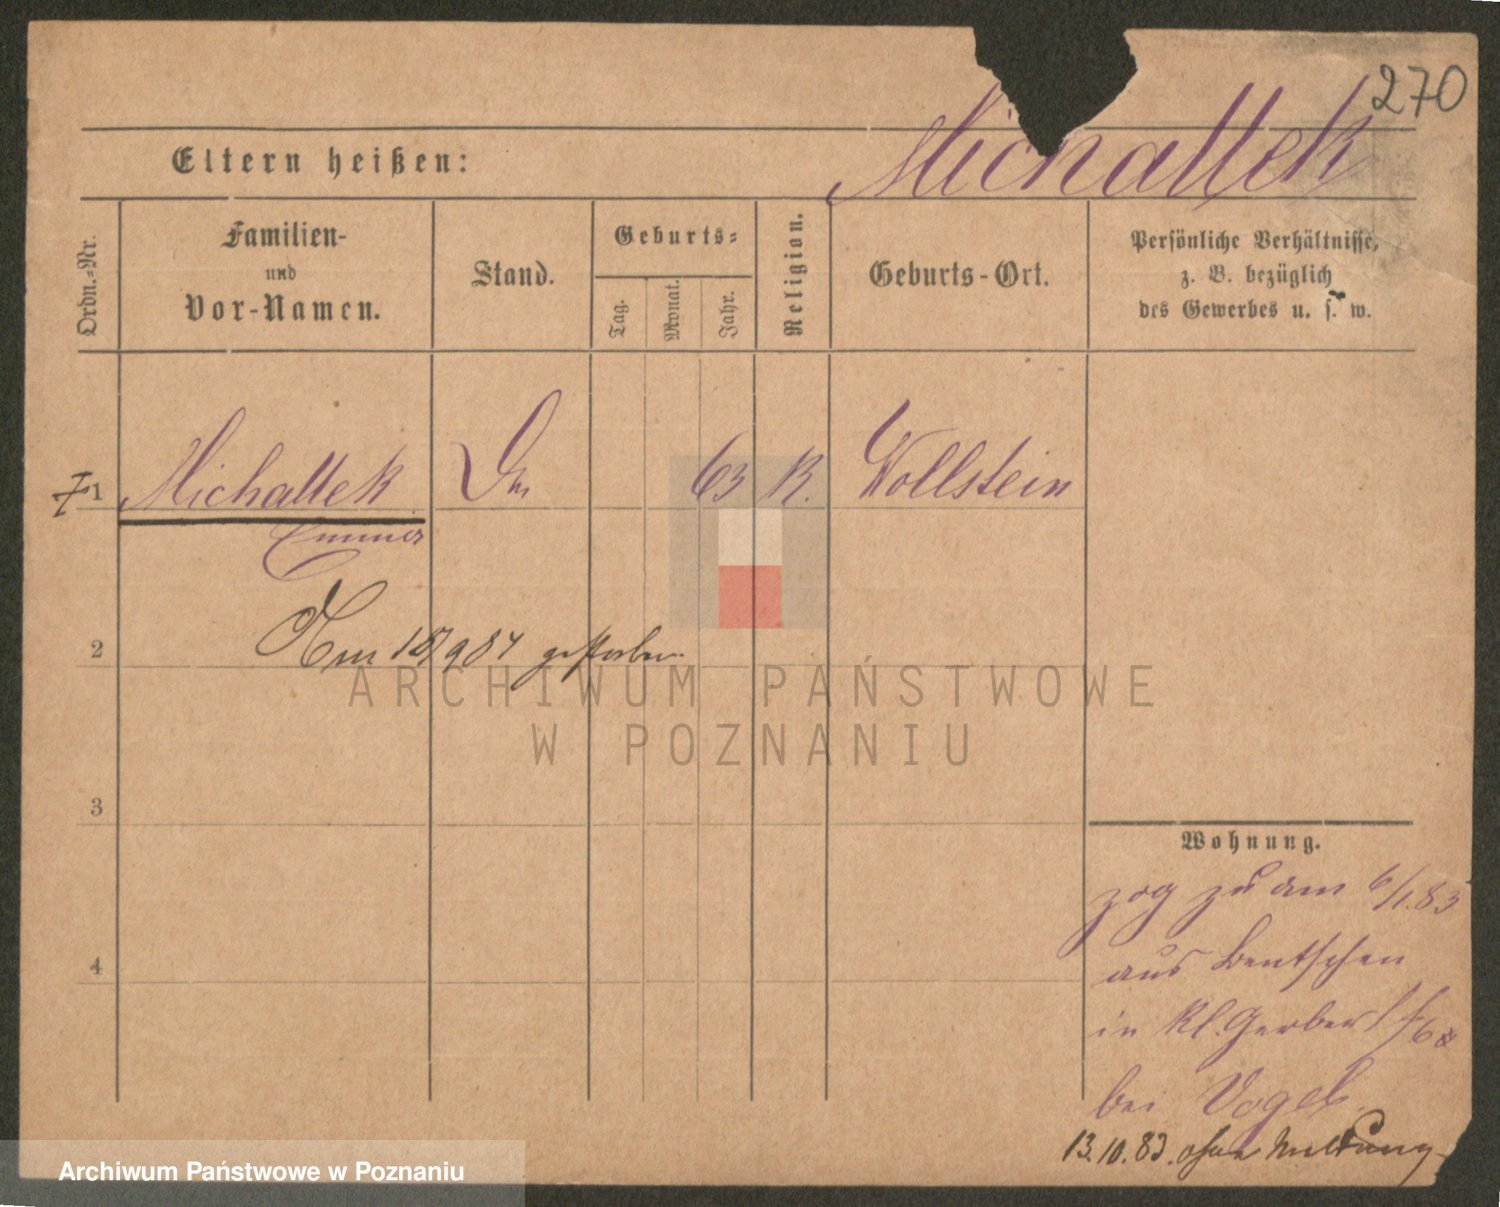 270
Michallek
Eltern heißen:
Ordn.-Nr.
Familien-
und
Vor-Namen.
Stand.
Geburts-
Tag.
Monat.
Jahr.
Religion.
Geburts-Ort.
Persönliche Verhältnisse,
z. B. bezüglich
des Gewerbes u. s. w.
1 Michallek 63 K. Wollstein
Emma
2 Am 18/9 84 gestorben.
3
4
Wohnung.
zog zu am 6/1.83
aus Bentschen
in Kl. Gerberst 6
bei Vogel.
13.10.83. ohne Meldung
ARCHIWUM PAŃSTWOWE
W POZNANIU
Archiwum Państwowe w Poznaniu